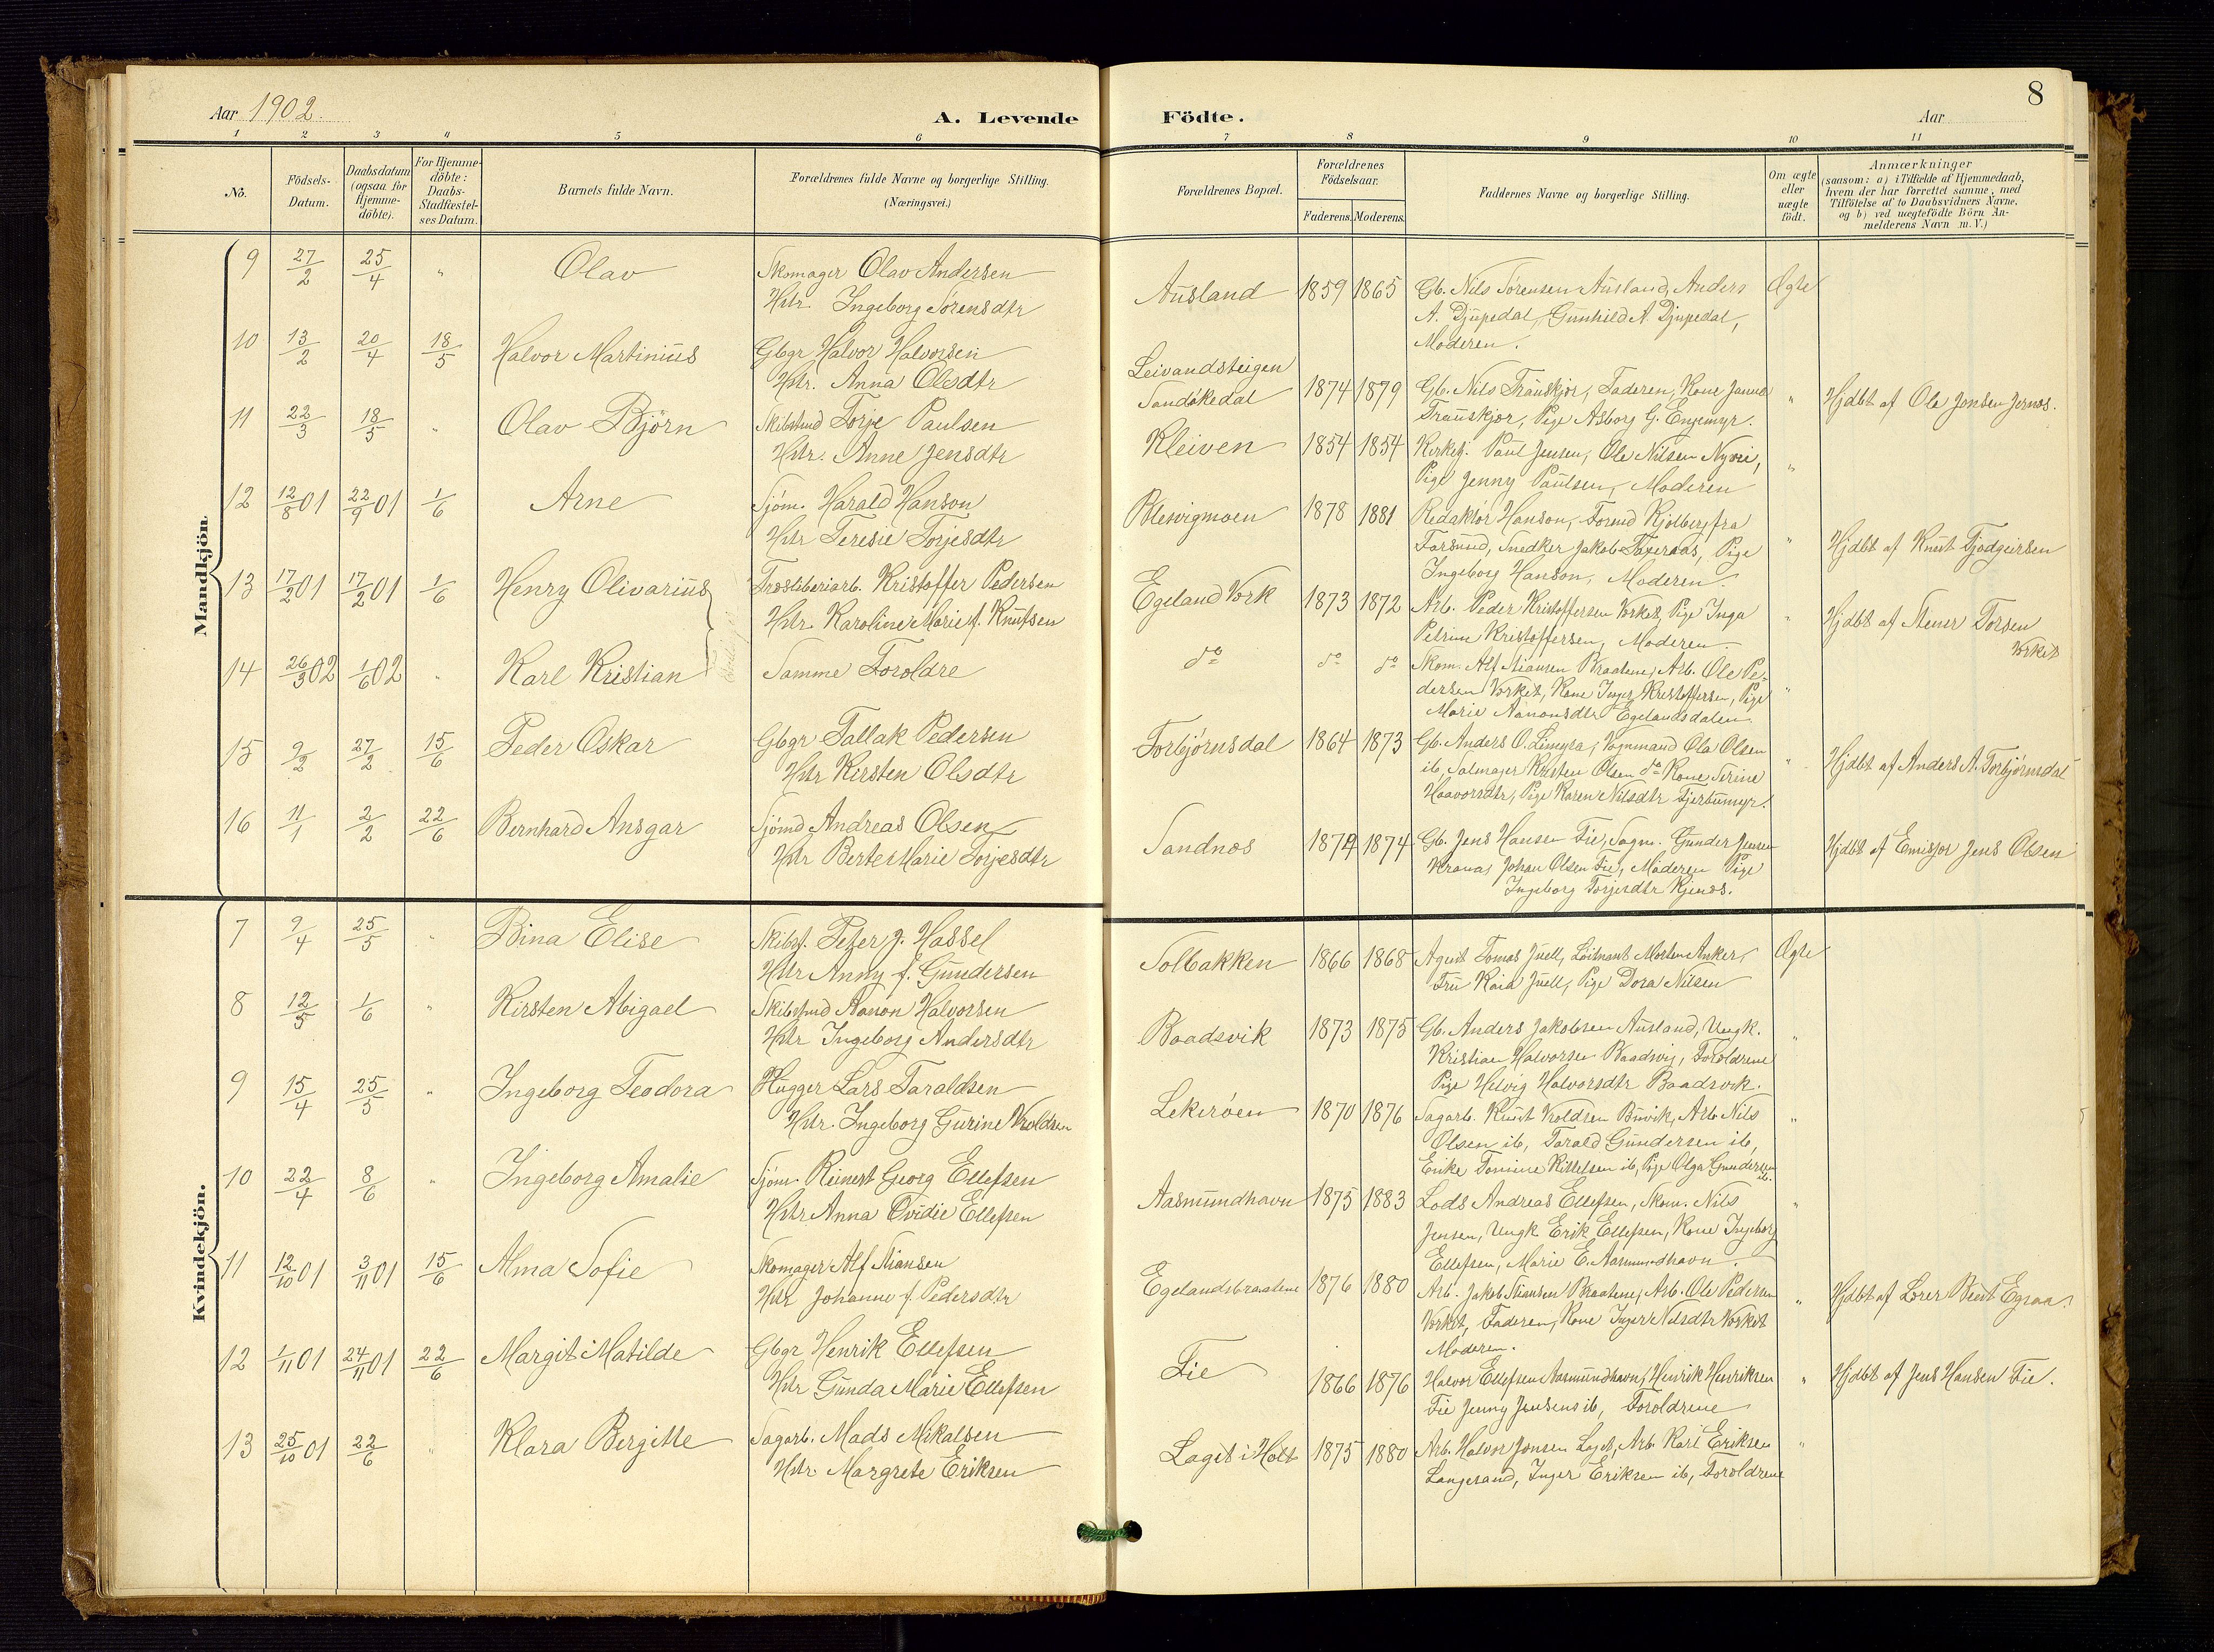 Aar 1902.
A. Levende
1 2 3 4 5 6
No.
Födsels-Datum.
Daabsdatum (ogsaa for Hjemme-döbte).
For Hjemme-döbte: Daabs-Stadfæstel-ses Datum.
Barnets fulde Navn.
Forældrenes fulde Navne og borgerlige Stilling.
(Næringsvei.)
Mandkjön.
9 27/2 25/4 " Olav Skomager Olav Andersen
Hstr. Ingeborg Sørensdtr
10 13/2 20/4 18/5 Halvor Martinius Gbgr Halvor Halvorsen
Hstr. Anna Olsdtr
11 22/3 18/5 " Olav Björn Skibstmd Torje Paulsen
Hstr. Anne Jensdtr
12 12/8 01 22/9 01 1/6 Arne Sjøm. Harald Hanson
Hstr Teresie Torjesdtr
13 17/2 01 17/2 01 1/6 Henry Olivarius Træsliberiarb. Kristoffer Pedersen
Hstr. Karoline Marie f. Knutsen
14 26/3 02 1/6 02 " Karl Kristian Samme Foroldre
15 9/2 27/2 15/6 Peder Oskar Gbgr Tallak Pedersen
Hstr Kirsten Olsdtr
16 11/1 2/2 22/6 Bernhard Ansgar Sjömd Andreas Olsen
Hstr Berte Marie Torjesdtr
Kvindekjön.
7 9/4 25/5 " Bina Elise Skibsf. Peter J. Hassel
Hstr Anny f. Gundersen
8 12/5 1/6 " Kirsten Abigael Skibstmd Aanon Halvorsen
Hstr Ingeborg Andersdtr
9 15/4 25/5 " Ingeborg Teodora Hugger Lars Taraldsen
Hstr. Ingeborg Gurine Vroldsen
10 22/4 8/6 " Ingeborg Amalie Sjøm. Reinert Georg Ellefsen
Hstr Anna Ovidie Ellefsen
11 12/10 01 3/11 01 15/6 Alma Sofie Skomager Alf Stiansen
Hstr Johanne f. Pedersdtr
12 1/11 01 24/11 01 22/6 Margit Matilde Gbgr Henrik Ellefsen
Hstr Gunda Marie Ellefsen
13 25/10 01 22/6 " Klara Bergitte Sagarb. Mads Mikalsen
Hstr. Margrete Eriksen
8
Födte.
Aar
7 8 9 10 11
Forældrenes Bopæl.
Forældrenes Födselsaar.
Faderens. Moderens.
Faddernes Navne og borgerlige Stilling.
Om ægte eller uægte födt.
Anmærkninger
(saasom: a) i Tilfælde af Hjemmedaab,
hvem der har forrettet samme, med
Tilföielse af to Daabsvidners Navne.
og b) ved uægtefödte Börn An-
melderens Navn m.V.)
Ausland 1859 1865 Gb. Nils Sørensen Ausland, Anders Ægte
A. Djupedal, Gunhild A. Djupedal,
Moderen.
Leivandsteigen
Sandøkedal 1874 1879 Gb. Nils Trauskjør, Faderen, Kone Janna " Hjdbt af Ole Jensen Jernæs.
Trauskjør, Pige Asborg G. Engemyr.
Kleiven 1854 1854 Kirketj. Paul Jensen, Ole Nilsen "
Pige Jenny Paulsen, Moderen
1878 1881 Redaktør Hanson, Formd Kjølberg fra
Farsund, Snedker Jakob Pige " Hjdbt af Knut
Ingeborg Hanson, Moderen.
Egeland Verk 1873 1872 Arb. Peder Kristoffersen Verket, Pige Inga " Hjdbt af Stener Torsen
Petrine Kristoffersen, Moderen. Verket
do do do Skom. Alf Stiansen Braatene, Arb. Ole Pe-
dersen Verket, Kone Inger Kristoffersen, Pige "
Marie Aanonsdtr Egelandsdalen.
Torbjørnsdal 1864 1873 Gb. Anders O. Limyra, Vognmand Ole Olsen
ib, Salmager Kristen Olsen do Kone Serine " Hjdbt af Anders A. Torbjørnsdal
Haavorsdtr, Pige Karen Nilsdtr
Sandnæs 1874 1874 Gb. Jens Hansen Fie, Sagm. Gunder Jensen Hjdbt af Emissør Jens Olsen
Krana, Johan Olsen Fie, Moderen Pige
Ingeborg Torjesdtr
Solbakken 1866 1868 Agent Tomas Juell, Løitnant Morten Anker, Ægte
Fru Kaia Juell, Pige Dora Nilsen
Baadsvik 1873 1875 Gb. Anders Jakobsen Ausland, Ungk. "
Kristian Halvorsen Baadsvig, Foroldrene
Pige Helvig Halvorsdtr Baadsvik.
Lekerøen 1870 1876 Sagarb. Knut Vroldsen Buvik, Arb. Nils "
Olsen ib, Tarald Gundersen ib,
Enke Tomine Kittelsen ib, Pige Olga Gundersen ib.
Aasmundhavn 1875 1883 Lods Andreas Ellefsen, Skom. Nils "
Jensen, Ungk Erik Ellefsen, Kone Ingeborg
Ellefsen, Marie E. Aasmundhavn.
Egelandsbraatene 1876 1880 Arb. Jakob Stiansen Braatene, Arb. Ole Pedersen " Hjdbt af Lærer Bent Egraa.
Verket, Faderen, Kone Inger Nilsdtr Verket
Moderen.
Fie 1866 1876 Halvor Ellefsen Aasmundhavn, Henrik Henriksen " Hjdbt af Jens Hansen Fie.
Fie Jenny Jensens ib, Foroldrene
Laget i Holt 1875 1880 Arb. Halvor Jensen Laget, Arb. Karl Eriksen "
Langesand, Inger Eriksen ib, Foroldrene